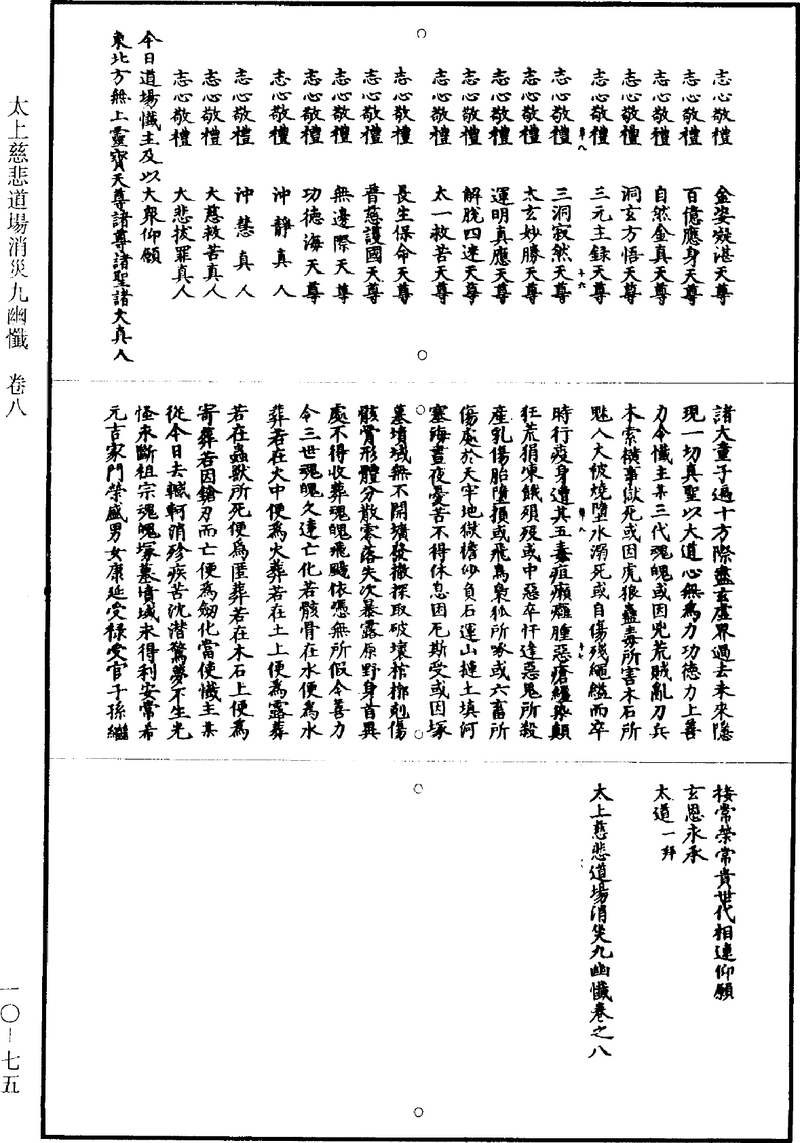 志心敬禮　金姿凝湛天尊
志心敬禮　百億應身天尊
志心敬禮　自然金真天尊
志心敬禮　洞玄方悟天尊
志心敬禮　三元主錄天尊
志心敬禮　三洞寂然天尊
志心敬禮　太玄妙勝天尊
志心敬禮　運明真應天尊
志心敬禮　解脫四迷天尊
志心敬禮　太一救苦天尊
志心敬禮　長生保命天尊
志心敬禮　普慈護國天尊
志心敬禮　無邊際天尊
志心敬禮　功德海天尊
志心敬禮　沖靜真人
志心敬禮　沖慧真人
志心敬禮　大慈救苦真人
志心敬禮　大悲拔罪真人
今日道場懺主及以大衆仰願
東北方無上靈寶天尊諸尊諸聖諸大真人
諸大童子遍十方際盡玄虛界過去未來隱
現一切真聖以大道心無為力功德力上善
力令懺主某三代魂魄或因兇荒賊亂刀兵
木索橫事獄死或因虎狼蠱毒所害木石所
魅人火被燒墮水溺死或自傷殘繩縊而卒
時行疫身遭其五毒疽癩癰腫惡瘡纏染顛
狂荒狷凍餓殞歿或中惡卒忤逢惡鬼所殺
產乳傷胎墮損或飛鳥梟狐所啄或六畜所
傷處於天牢地獄擔沙負石運山揵土填河
塞海晝夜憂苦不得休息因厄斯受或因塚
墓墳域無不開壙發撤探取破壞棺槨剋傷
骸骨形體分散零落失次暴露原野身首異
處不得收葬魂魄飛颺依憑無所假令善力
令三世魂魄久違亡化若骸骨在水便為水
葬若在火中便為火葬若在土上便為露葬
若在蟲獸所死便為匿葬若在木石上便為
寄葬若因鎗刃而亡便為劒化當使懺主某
從今日去轗軻消殄疾苦沈潛驚夢不生光
怪來斷祖宗魂魄塚墓墳域未得利安常希
元吉家門榮盛男女康延受祿受官子孫繼
接常榮常貴世代相連仰願
玄恩永承
太道一拜
太上慈悲道場消災九幽懺卷之八
太上慈悲道場消災九幽懺　卷八
一〇－七五